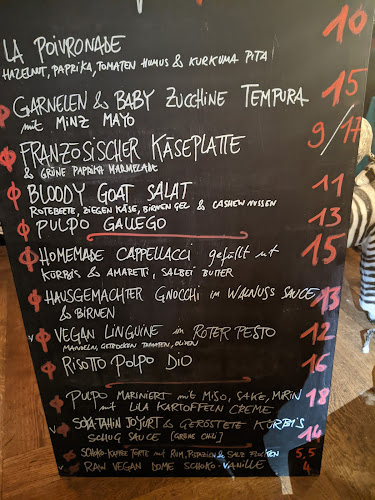 LA POIVRONADE 10
HAZELNUT, PAPRIKA, TOMATEN HUMUS & KURKUMA PITA
GARNELEN & BABY ZUCCHINE TEMPURA 15
mit MINZ MAYO
FRANZÖSISCHER KÄSEPLATTE 9/17
& GRÜNE PAPRIKA MARMELADE
BLOODY GOAT SALAT 11
ROTEBEETE, ZIEGEN KÄSE, BIRNEN GEL & CASHEW NUSSEN
PULPO GALLEGO 13
HOMEMADE CAPPELLACCI gefüllt mit 15
KÜRBIS & AMARETTI, SALBEI BUTTER
HAUSGEMACHTER GNOCCHI in WALNUSS SAUCE 13
& BIRNEN
V VEGAN LINGUINE in ROTER PESTO 12
MANDELN, GETROCKEN TOMATEN, OLIVEN
RISOTTO POLPO DIO 16
PULPO MARINIERT mit MISO, SAKE, MIRIN 18
mit LILA KARTOFFELN CREME
V SOYA-TAHIN JOYURT & GERÖSTETE KÜRBIS 14
SCHUG SAUCE (GRÜNE CHILI)
SCHOKO-KAFFEE TORTE mit RUM, PISTAZIEN & SALZ FLOCKEN 5,5
V RAW VEGAN DOME SCHOKO-VANILLE 4